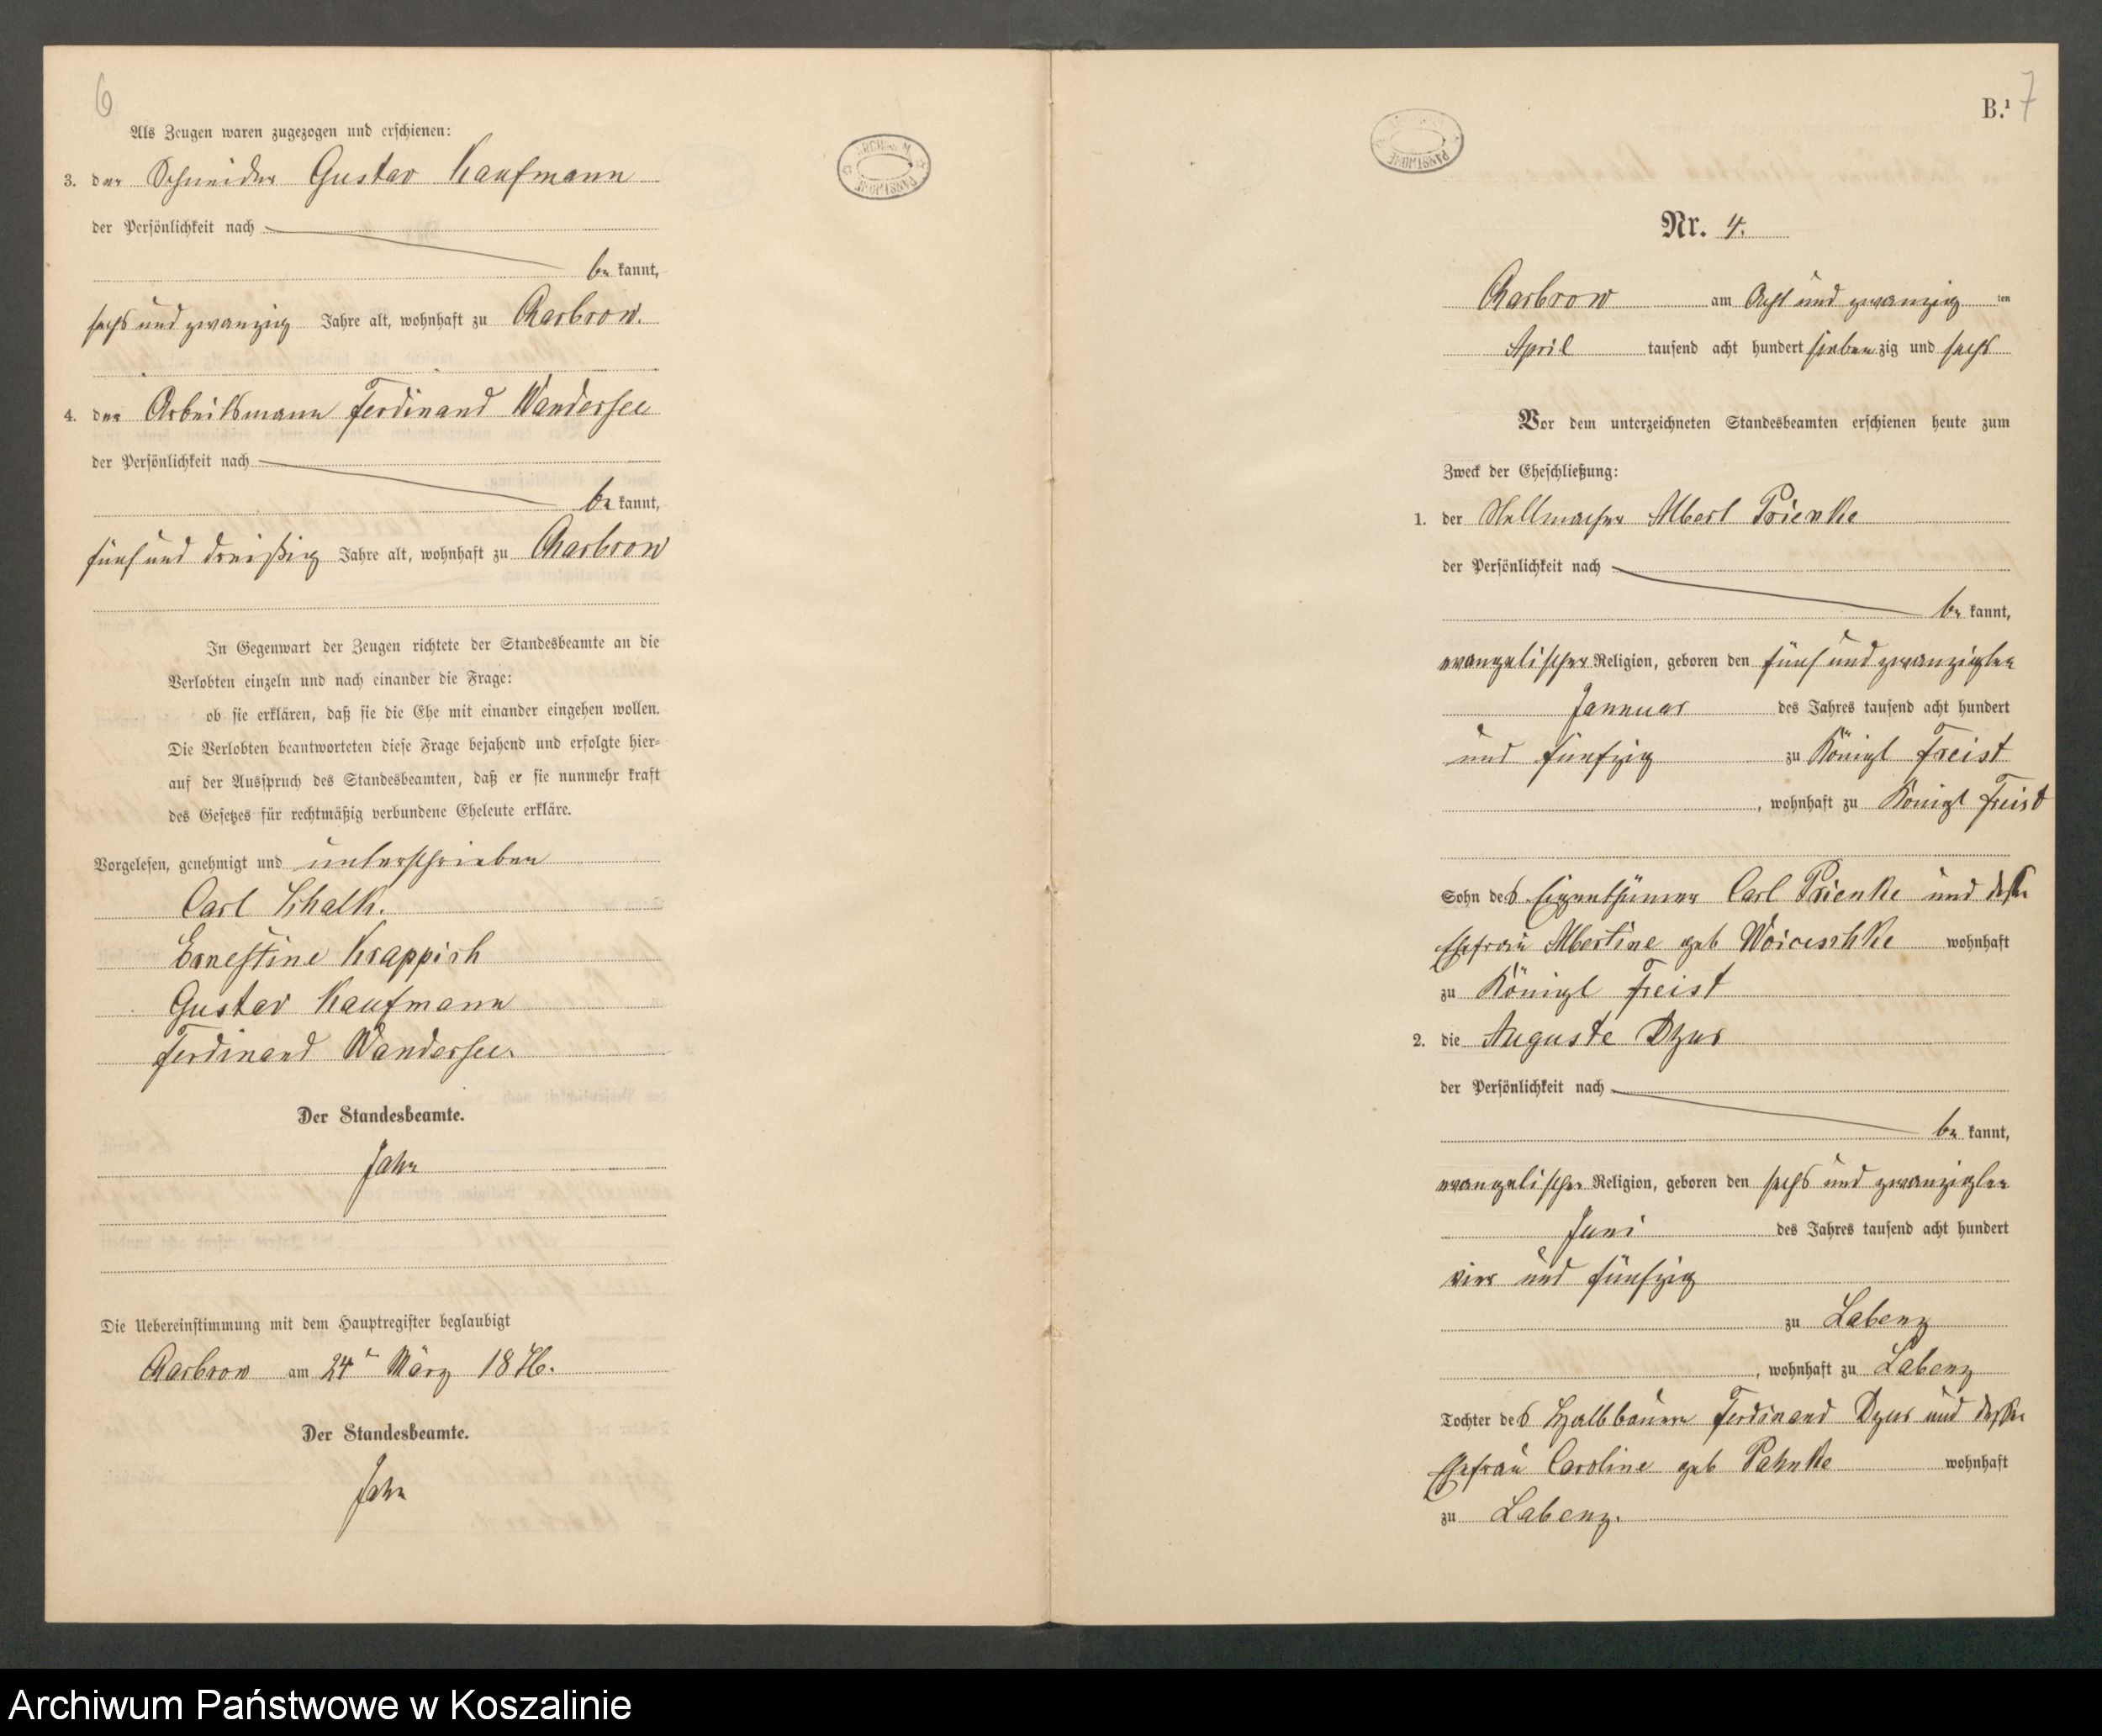 6
Als Zeugen waren zugezogen und erschienen:
3. der Schneider Gustav Kaufmann
der Persönlichkeit nach
be kannt,
sechs und zwanzig Jahre alt, wohnhaft zu Charbrow.
4. der Arbeitsmann Ferdinand Wandersee
der Persönlichkeit nach
be kannt,
fünf und dreißig Jahre alt, wohnhaft zu Charbrow
In Gegenwart der Zeugen richtete der Standesbeamte an die
Verlobten einzeln und nach einander die Frage:
ob sie erklären, daß sie die Ehe mit einander eingehen wollen.
Die Verlobten beantworteten diese Frage bejahend und erfolgte hier-
auf der Ausspruch des Standesbeamten, daß er sie nunmehr kraft
des Gesetzes für rechtmäßig verbundene Eheleute erkläre.
Vorgelesen, genehmigt und unterschrieben
Carl Schalk.
Ernestine Krappich
Gustav Kaufmann
Ferdinand Wandersee.
Der Standesbeamte.
Jahn
Die Uebereinstimmung mit dem Hauptregister beglaubigt
Charbrow am 24n März 1876.
Der Standesbeamte.
Jahn
ARCHIWUM PAŃSTWOWE
B.¹ 7
ARCHIWUM PAŃSTWOWE
Nr. 4.
Charbrow am Acht und zwanzig ten
April tausend acht hundert sieben zig und sechs
Vor dem unterzeichneten Standesbeamten erschienen heute zum
Zweck der Eheschließung:
1. der Stellmacher Albert Prienke
der Persönlichkeit nach
be kannt,
evangelischer Religion, geboren den fünf und zwanzigsten
Januar des Jahres tausend acht hundert
und fünfzig zu Königl Freist
, wohnhaft zu Königl Freist
Sohn des Eigenthümer Carl Prienke und dessen
Ehefrau Albertine geb Woiceschke wohnhaft
zu Königl Freist
2. die Auguste Dzus
der Persönlichkeit nach
be kannt,
evangelischer Religion, geboren den sechs und zwanzigsten
Juni des Jahres tausend acht hundert
vier und fünfzig
zu Labenz
, wohnhaft zu Labenz
Tochter des Halbbauern Ferdinand Dzus und dessen
Ehefrau Caroline geb Pahnke wohnhaft
zu Labenz.
Archiwum Państwowe w Koszalinie